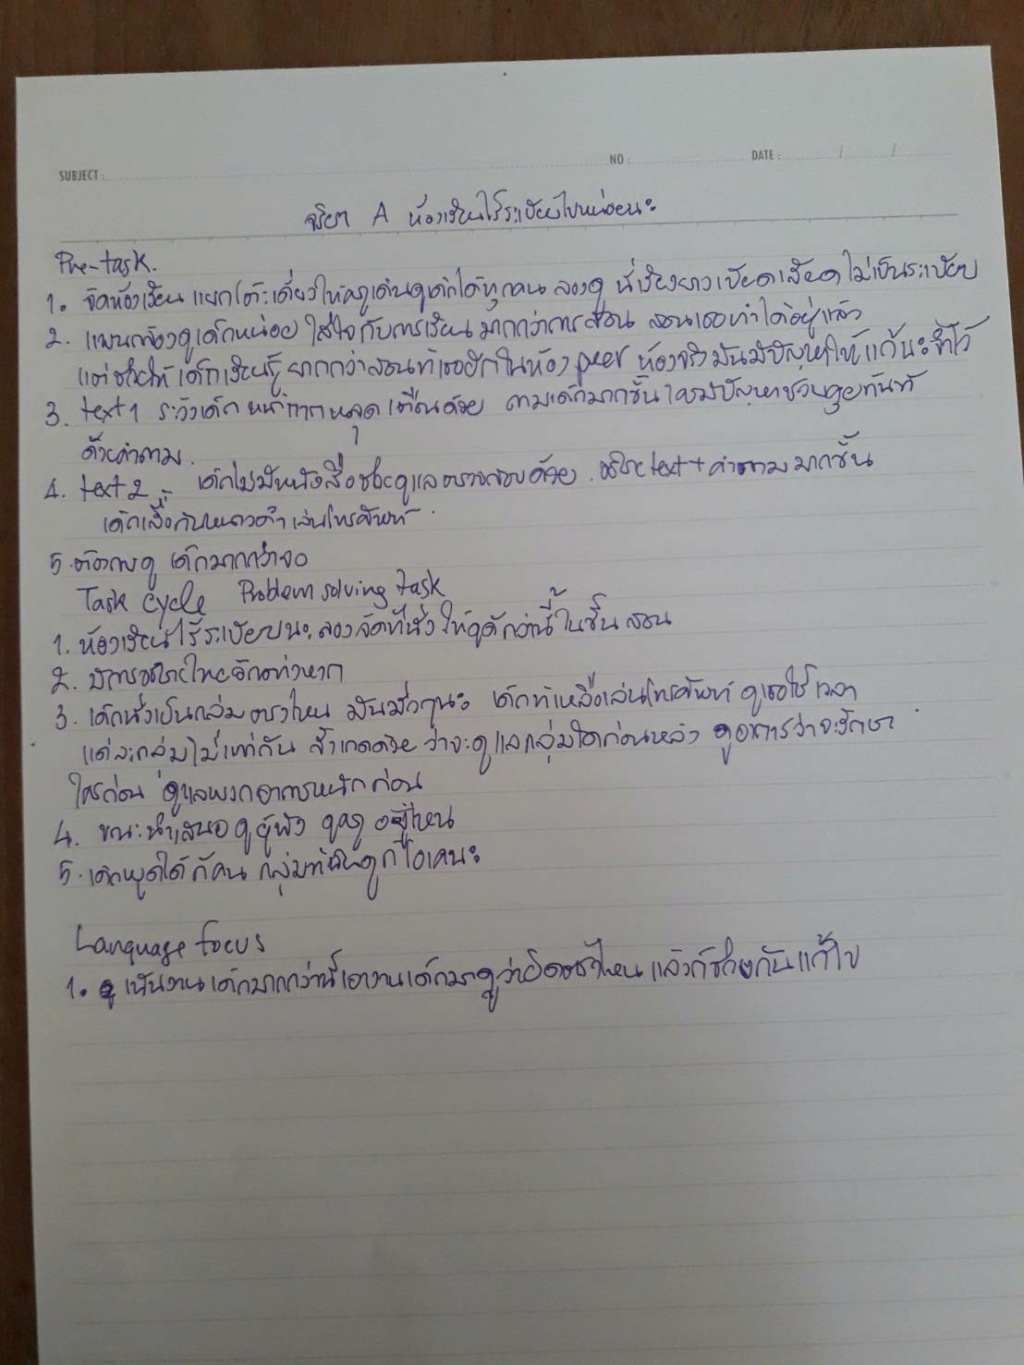 SUBJECT :
NO :
DATE : / /
จริยา A ห้องเรียนไร้ระเบียบไปหน่อยนะ
Pre-task.
1. จัดห้องเรียน แยกโต๊ะเดี่ยวให้ครูเดินดูเด็กได้ทุกคน ลองดู นี่เรียงยาวเบียดเสียด ไม่เป็นระเบียบ
2. แพนกล้องดูเด็กหน่อย ใส่ใจกับการเรียน มากกว่าการสอน สอนเธอทำได้อยู่แล้ว
แต่ช่วยให้ เด็กเรียนรู้ ยากกว่าสอน ในห้อง peer ห้องจริงมันมีปัญหาให้แก้นะ
3. text 1 ระวังเด็ก หน้ากากหลุด เตือนด้วย ถามเด็กมากขึ้น ใครมีปัญหาช่วย ทันที
ด้วยคำถาม.
4. text 2 เด็กไม่มีหนังสือ ดูแลตรวจสอบด้วย. อธิบาย text + คำถาม มากขึ้น
เด็กเสื้อกันหนาวดำ เล่นโทรศัพท์.
5. ดู เด็กมากกว่าจอ
Task cycle Problem solving task
1. ห้องเรียนไร้ระเบียบนะ ลองจัดที่นั่ง ให้ดูดีกว่านี้ ในชั้น สอน
2. มีการอธิบายไทยอีกต่างหาก
3. เด็กนั่งเป็นกลุ่มตรงไหน มันมั่วๆนะ เด็กที่เหลือเล่นโทรศัพท์ ดูเธอใช้เวลา
แต่ละกลุ่มไม่เท่ากัน สังเกตด้วย ว่าจะดูแลกลุ่มใดก่อนหลัง ดูอาการว่าจะรักษา
ใครก่อน ดูแลพวกอาการหนักก่อน
4. ขณะนำเสนอ ดูผู้ฟัง ดูครู อยู่ไหน
5. เด็กพูดได้ กี่คน กลุ่มที่ ก็โอเคนะ
Language focus
1. เน้นงานเด็กมากกว่านี้ เอางานเด็กมาดูว่าผิดตรงไหน แล้วก็ช่วยกันแก้ไข